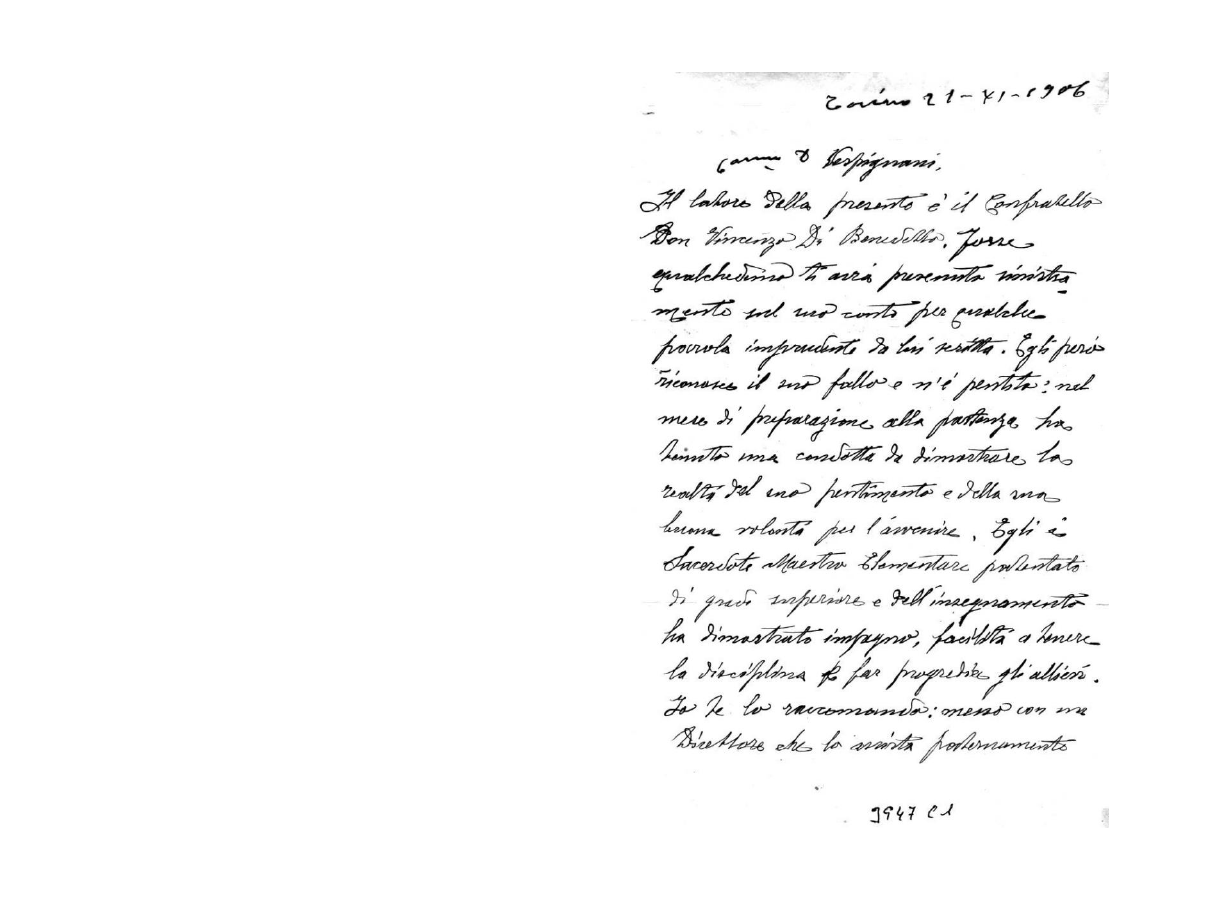 Torino 21-XI-1906
Carmo D Vespignani,
Il latore della presente è il Confratello
Don Vincenzo Di Benedetto. Forse
qualcheduno ti avrà prevenuto sinistra
mente sul suo conto per qualche
parola imprudente da lui scritta. Egli però
riconosce il suo fallo e n'è pentito: nel
mese di preparazione alla partenza ha
tenuto una condotta da dimostrare la
realtà del suo pentimento e della sua
buona volontà per l'avvenire. Egli è
Sacerdote Maestro Elementare patentato
di grado superiore e dell'insegnamento
ha dimostrato impegno, facilità a tenere
la disciplina e far progredire gli allievi.
Io te lo raccomando: messo con un
Direttore che lo assista paternamente
3947 C1